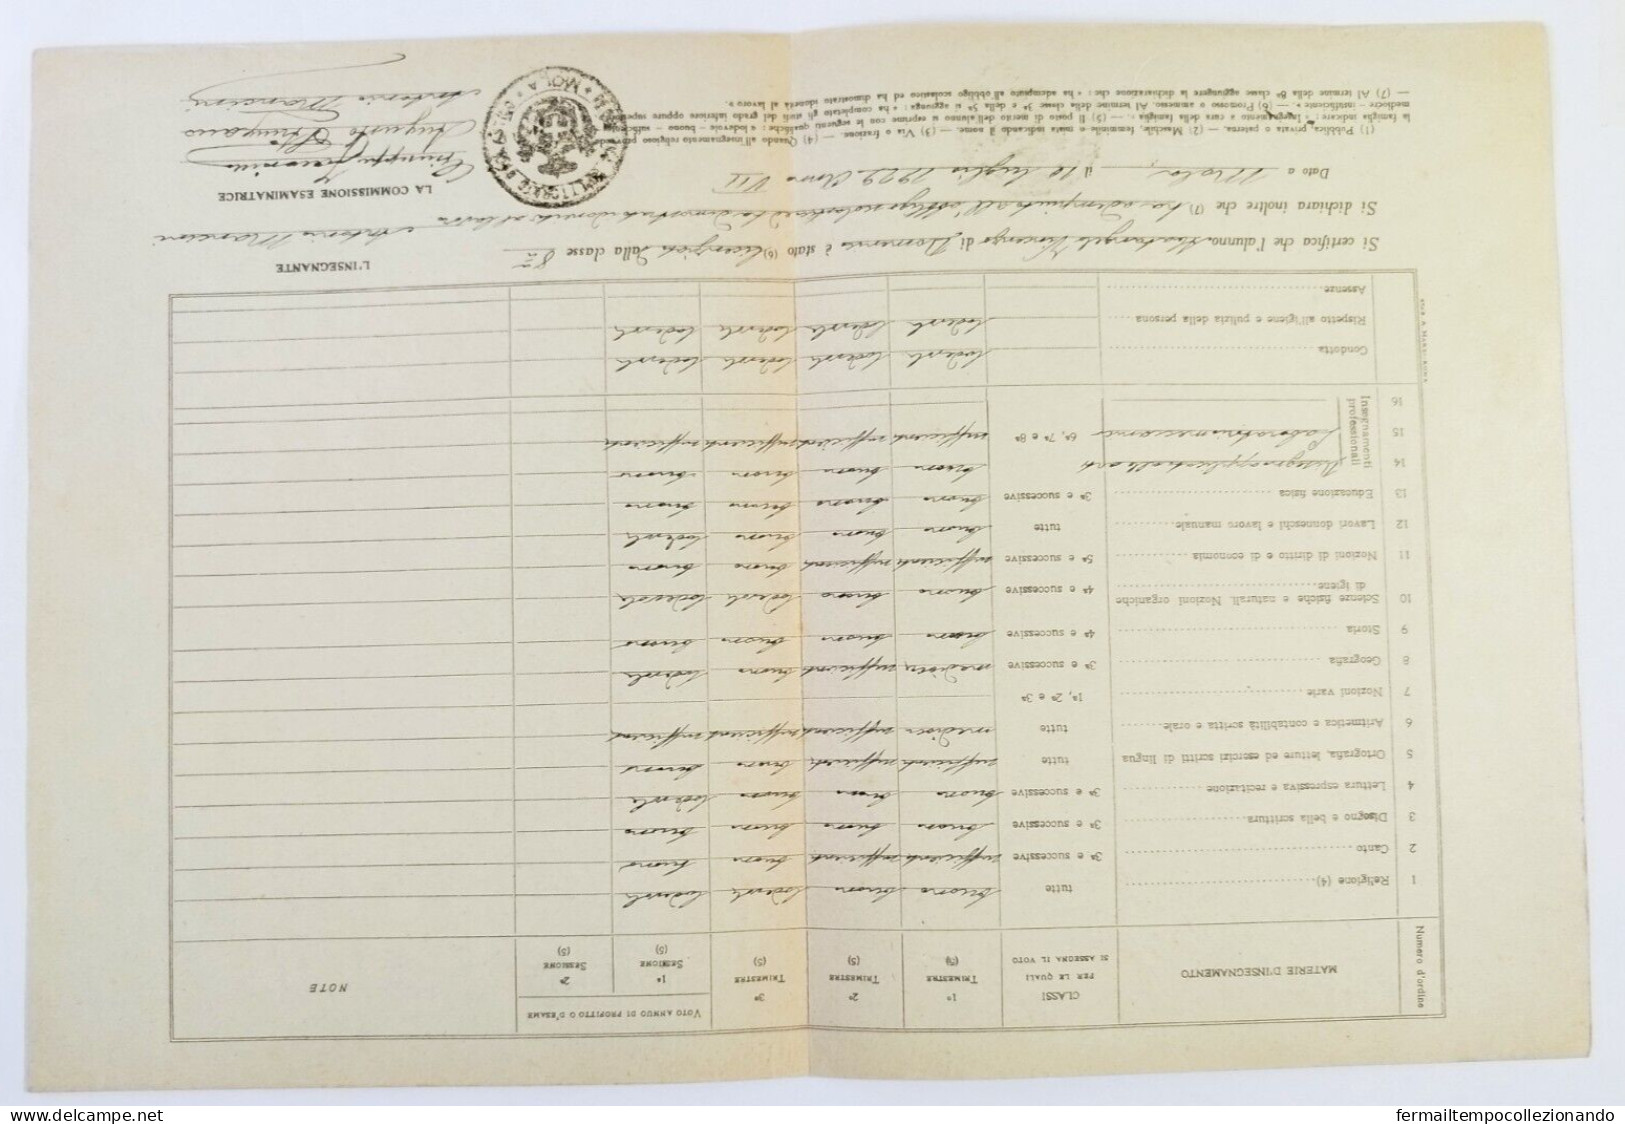 Numero d'ordine
MATERIE D'INSEGNAMENTO
CLASSI
PER LE QUALI
SI ASSEGNA IL VOTO
1º
TRIMESTRE
(5)
2º
TRIMESTRE
(5)
3º
TRIMESTRE
(5)
VOTO ANNUO DI PROFITTO O D'ESAME
1ª
SESSIONE
(5)
2ª
SESSIONE
(5)
NOTE
1 Religione (4) tutte buono buono buono lodevole lodevole
2 Canto 3ª e successive sufficiente sufficiente buono buono
3 Disegno e bella scrittura 3ª e successive buono buono buono buono
4 Lettura espressiva e recitazione 3ª e successive buono buono buono lodevole
5 Ortografia, letture ed esercizi scritti di lingua tutte sufficiente sufficiente buono buono
6 Aritmetica e contabilità scritta e orale tutte mediocre sufficiente sufficiente sufficiente
7 Nozioni varie 1ª, 2ª e 3ª
8 Geografia 3ª e successive mediocre sufficiente buono lodevole
9 Storia 4ª e successive buono buono buono buono
10 Scienze fisiche e naturali. Nozioni organiche
di igiene 4ª e successive buono buono lodevole lodevole
11 Nozioni di diritto e di economia 5ª e successive sufficiente sufficiente buono buono
12 Lavori donneschi e lavoro manuale tutte buono buono buono lodevole
13 Educazione fisica 3ª e successive buono buono buono buono
Insegnamenti professionali
14 Disegno applicato alle arti buono buono buono buono
15 Laboratorio meccanico 6ª, 7ª e 8ª sufficiente sufficiente sufficiente sufficiente
16
Condotta lodevole lodevole lodevole lodevole
Rispetto all'igiene e pulizia della persona lodevole lodevole lodevole lodevole
Assenze
L'INSEGNANTE
Antonio Mancini
Si certifica che l'alunno Vincenzo di Domenico è stato (6) licenziato dalla classe 8ª
Si dichiara inoltre che (7) ha adempiuto all'obbligo scolastico ed ha dimostrato idoneità al lavoro
Dato a Mola il 10 luglio 1929 Anno VII
LA COMMISSIONE ESAMINATRICE
Giuseppe
Augusto
Antonio Mancini
MOLA
(1) Pubblica, privata o paterna. — (2) Maschile, femminile e mista indicando il nome. — (3) Via o frazione. — (4) Quando all'insegnamento religioso
la famiglia indicare: « Insegnamento a cura della famiglia ». — (5) Il posto di merito dell'alunno si esprime con le seguenti qualifiche: « lodevole – buono – sufficiente
mediocre – insufficiente ». — (6) Promosso o ammesso. Al termine della classe 3ª e della 5ª si aggiunga: « ha completato gli studi del grado inferiore oppure
— (7) Al termine della 8ª classe aggiungere la dichiarazione che: « ha adempiuto all'obbligo scolastico ed ha dimostrato idoneità al lavoro ».
www.delcampe.net
fermailtempocollezionando